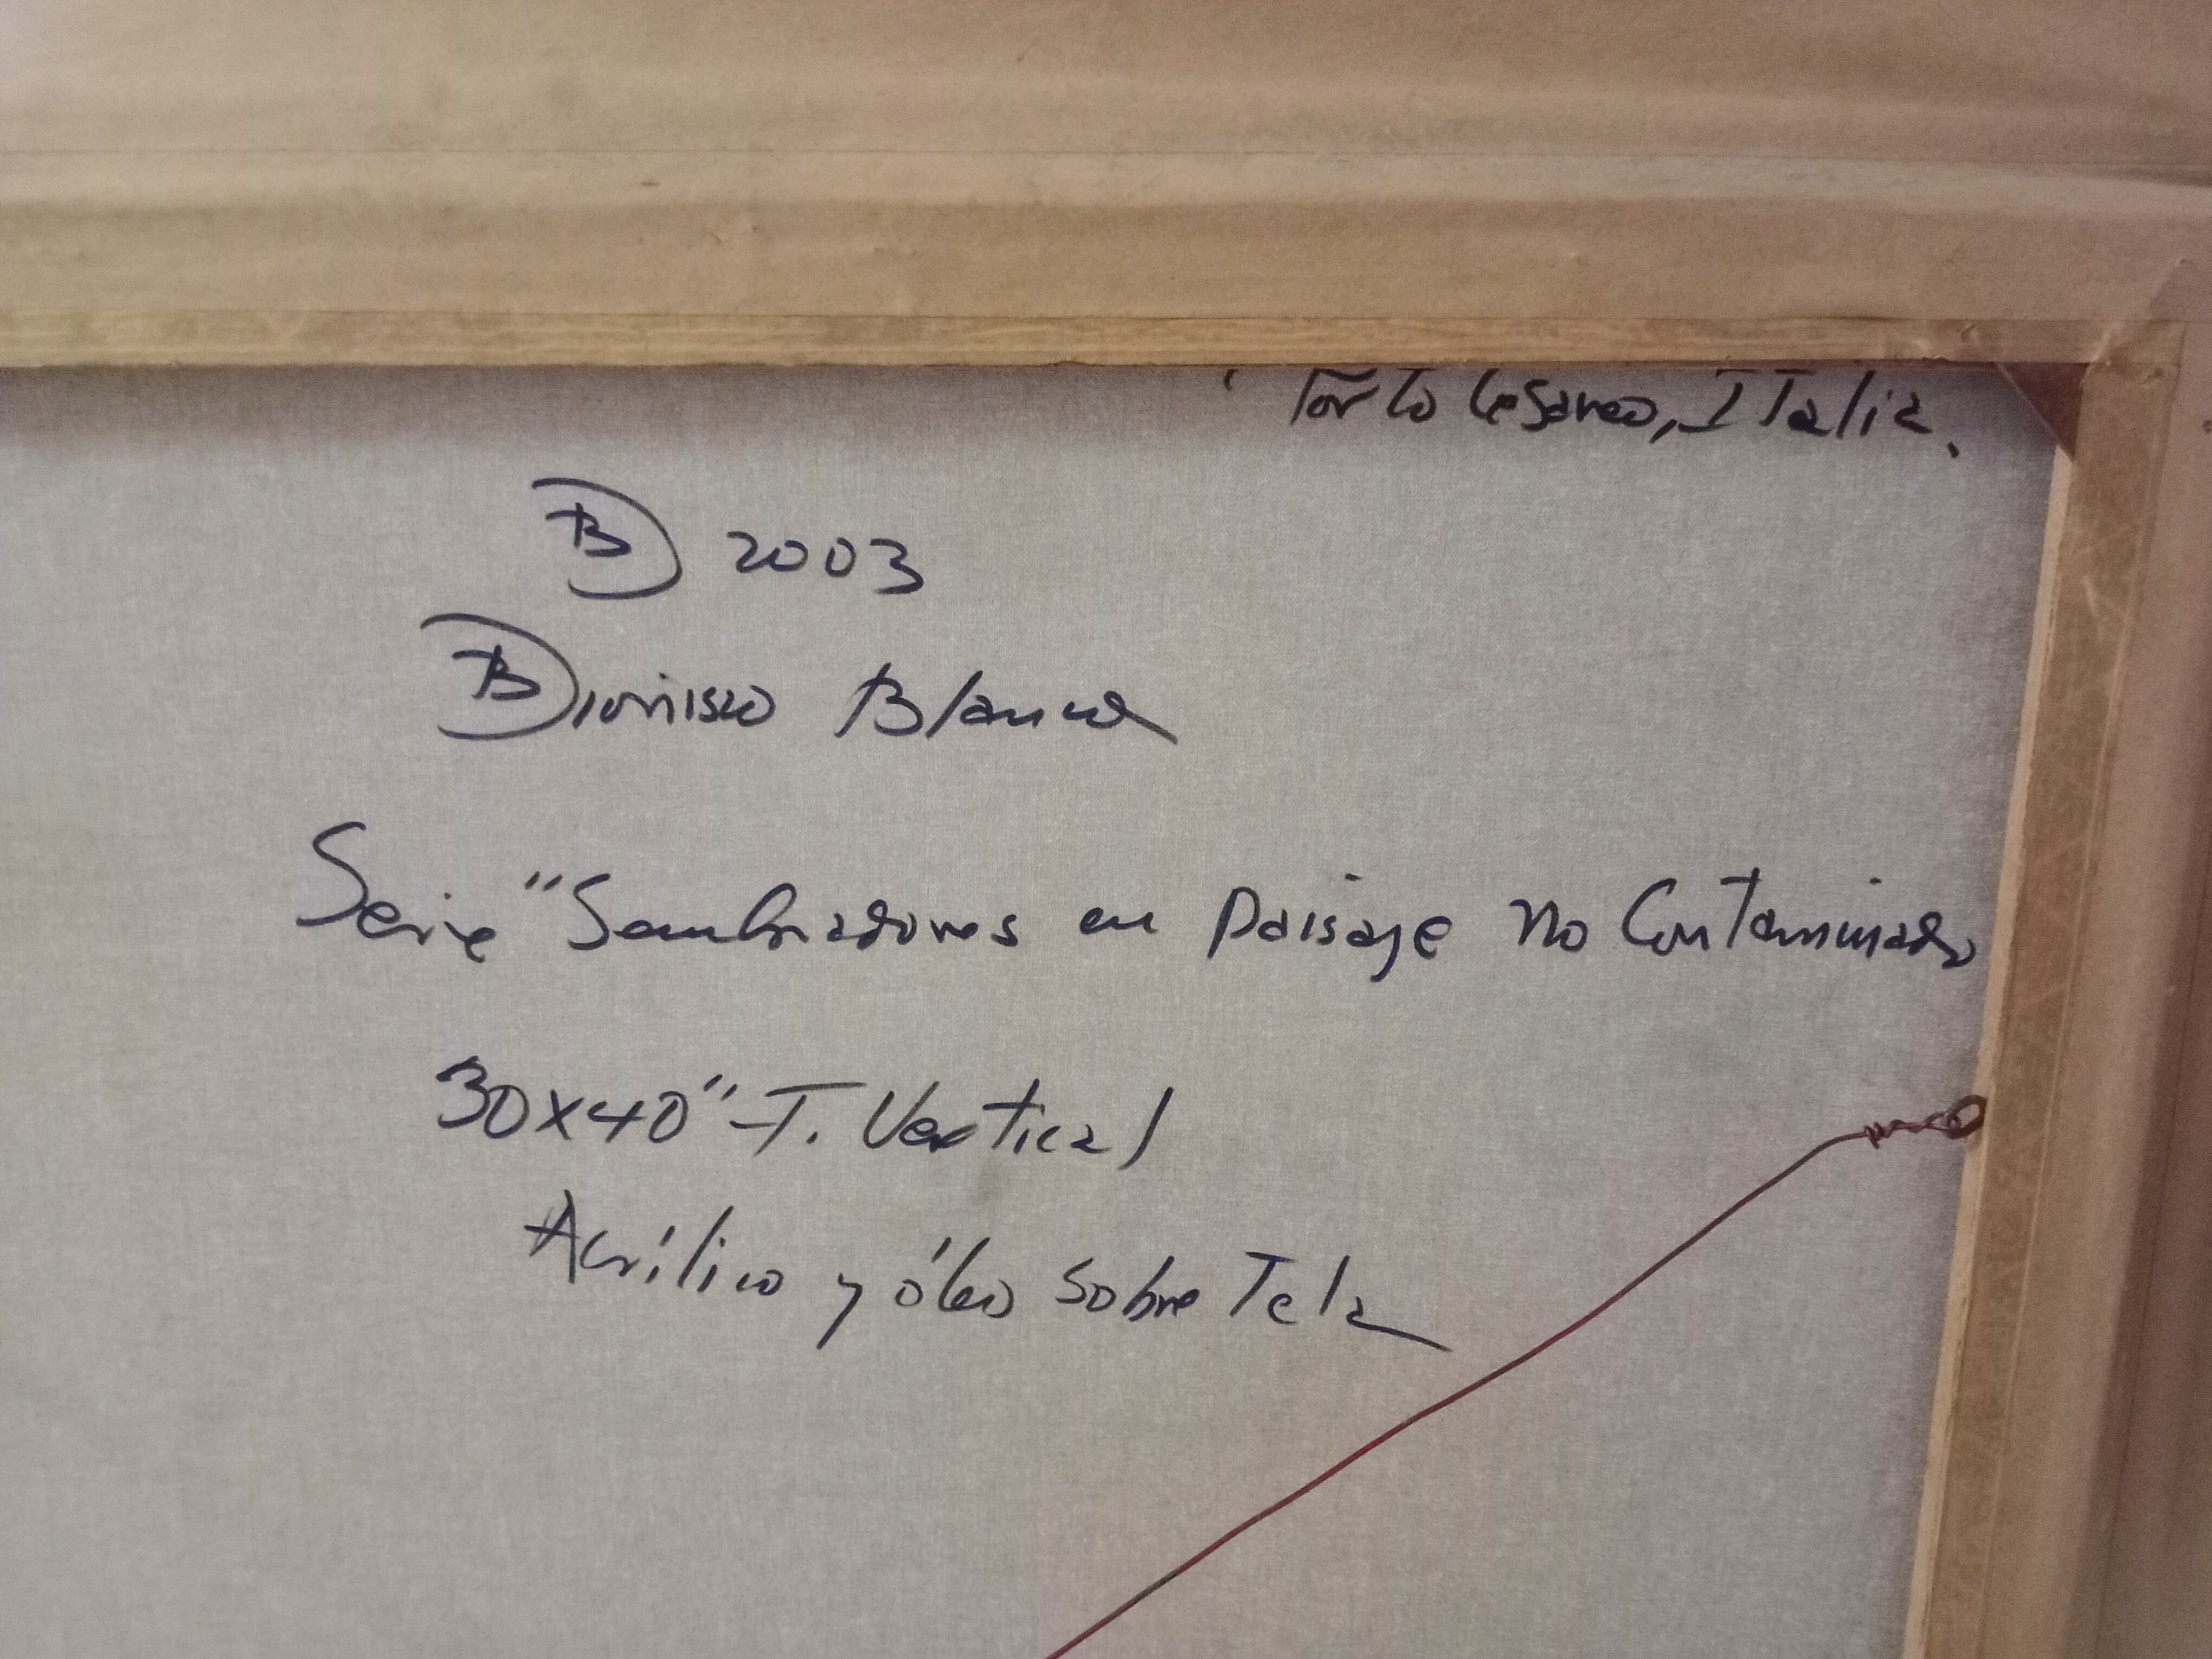 Porto Cesareo, Italia.
B 2003
Dionisio Blanco
Serie "Sembradores en paisaje no Contaminado
30x40" - T. Vertical
Acrílico y óleo sobre Tela